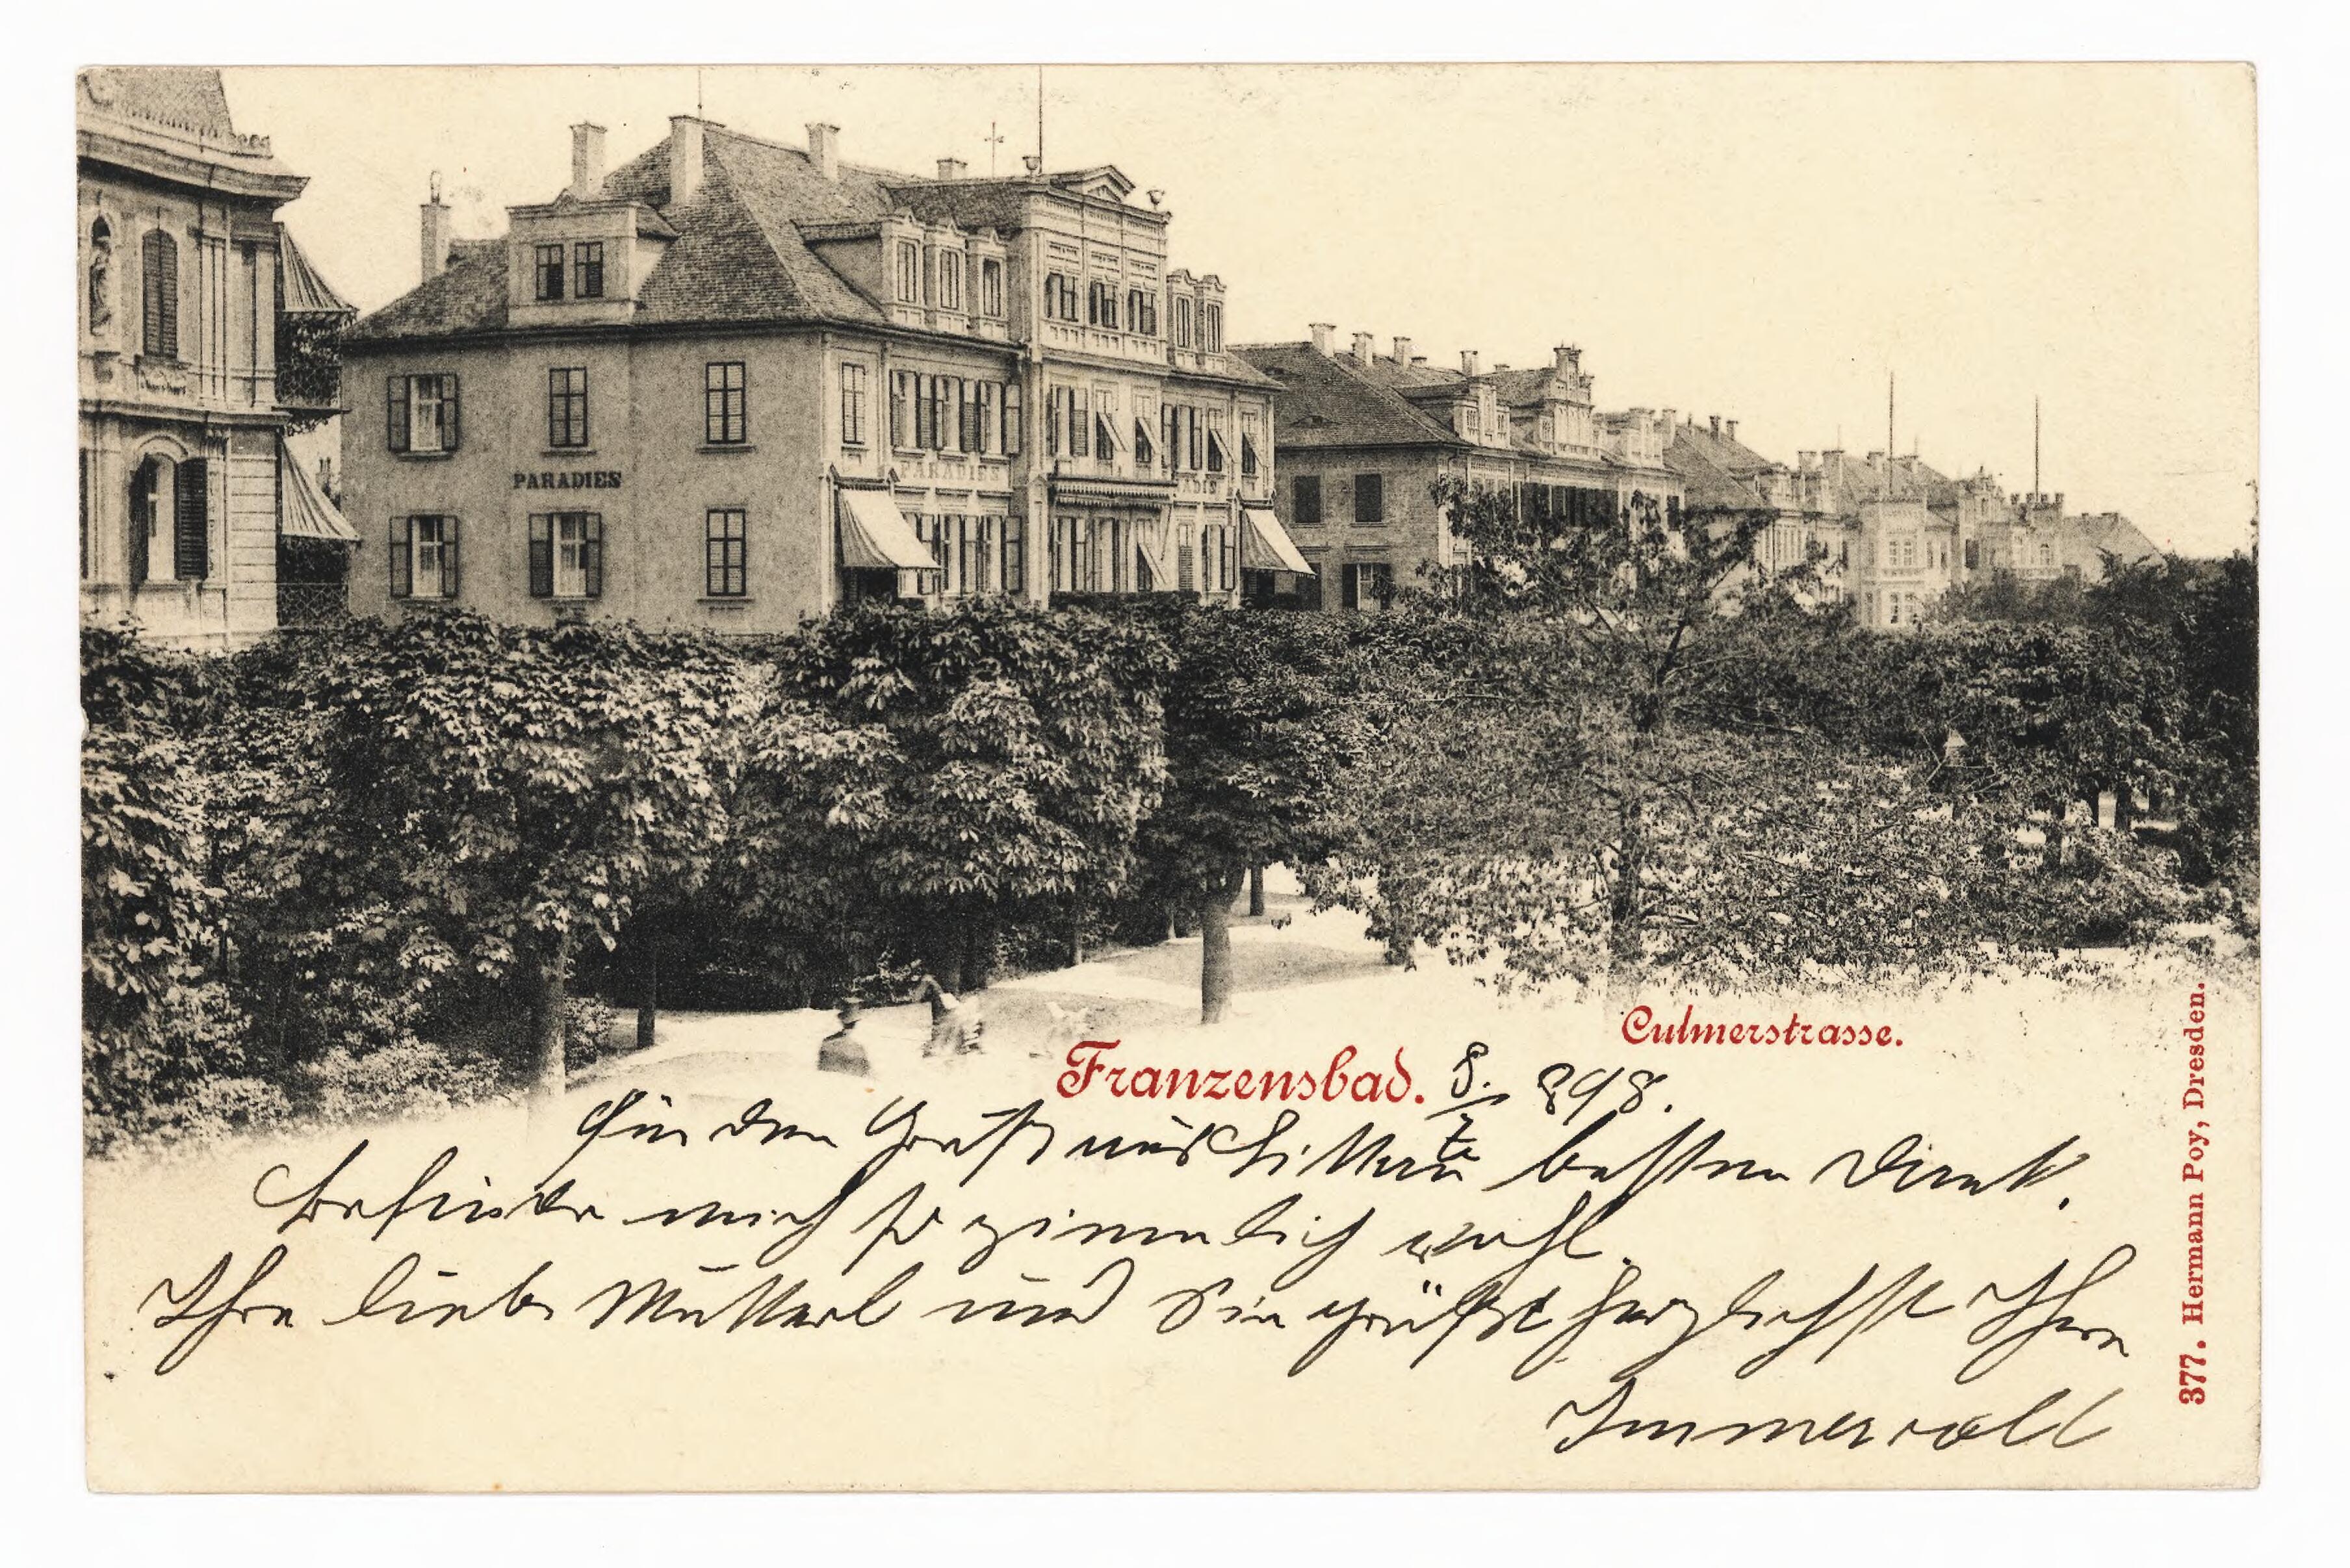 PARADIES
PARADIES
Culmerstrasse.
Franzensbad. 8./7. 898.
Für den Gruß aus besten Dank.
Befinde mich so ziemlich wohl.
Ihre liebe Mutterl und Sie grüßt herzlichst Ihre
377. Hermann Poy, Dresden.